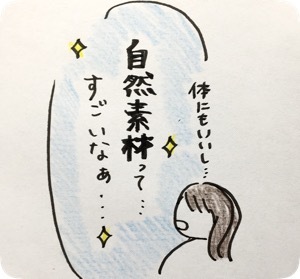 体にもいいし…
自然素材って…
すごいなぁ…